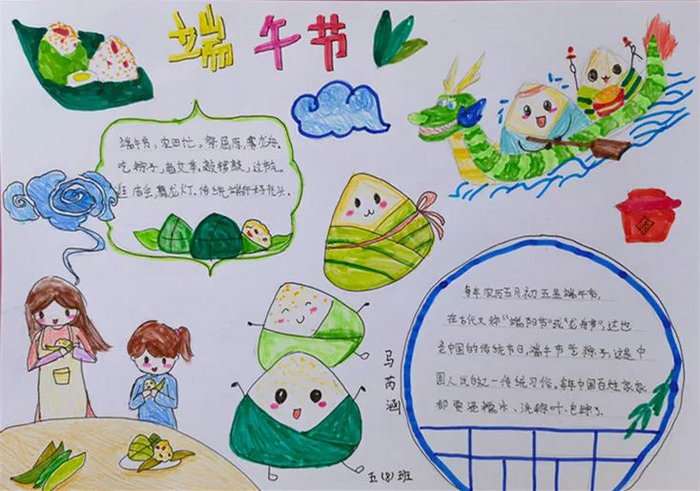 端午节
端午节，农田忙。祭屈原，赛龙舟。
吃粽子，苗艾草。敲锣鼓，过节。
逛庙会，舞龙灯。传统端午好
每年农历五月初五是端午节，
在古代又称"端阳节"或"龙舟节"，这也
是中国的传统节日，端午节吃粽子，这是中
国人民的又一传统习俗。每年中国百姓家家
都要浸糯米、洗粽叶、包粽子。
马芮涵
五(8)班
酒